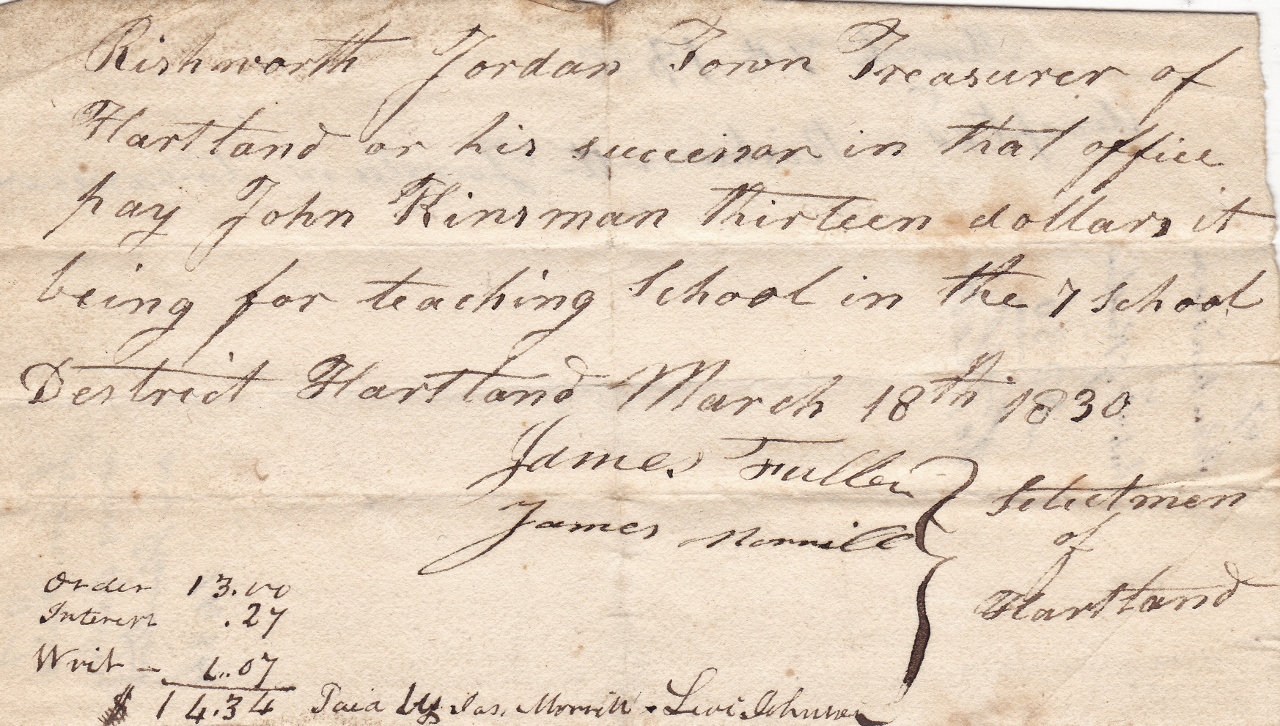 Rishworth Jordan Town Treasurer of
Hartland or his successor in that office
pay John Kinsman thirteen dollars it
being for teaching School in the 7 School
Destrict Hartland March 18th 1830
James Fuller
James Morrill
Selectmen
of
Hartland
Order 13.00
Interest .27
Writ - 1.07
$ 14.34 Paid by Jas. Morrill & Levi Johnson